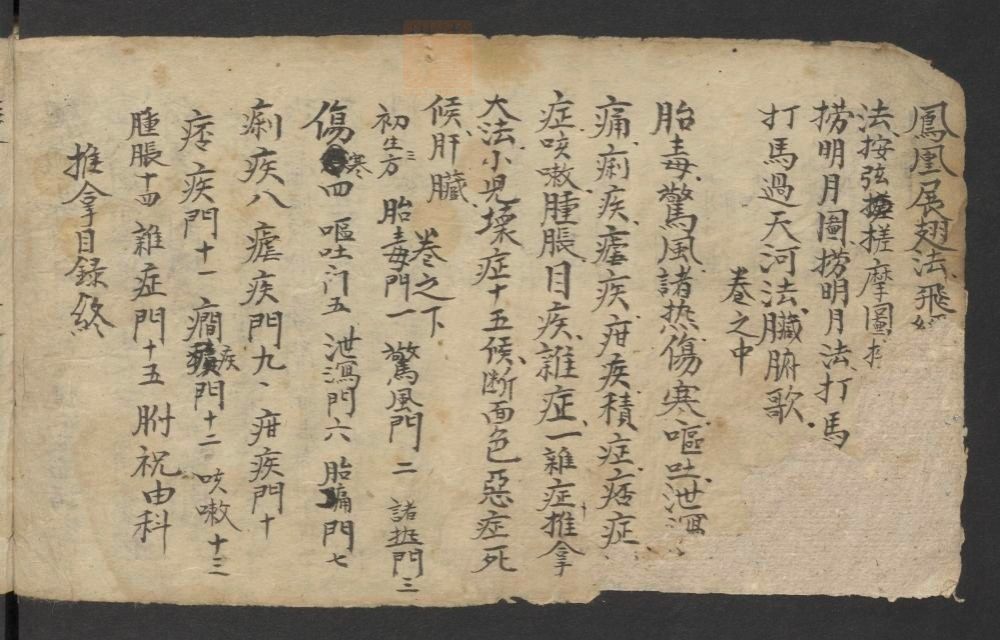 鳳凰展翅法飛經
法按弦搓摩圖
撈明月圖撈明月法打馬
打馬過天河法臟腑歌
卷之中
胎毒驚風諸热傷寒嘔吐泄瀉
痛痢疾瘧疾疳疾積症痞症
症咳嗽腫脹目疾雜症一雜症推拿
大法小児壞症十五候断面色惡症死
候肝臟
卷之下
初生方三 胎毒門一 驚風門二 諸热門三
傷寒四 嘔吐门五 泄瀉門六 胎痛門七
痢疾八 瘧疾門九 疳疾門十
疾門十一 癇疾門十二 咳嗽十三
腫脹十四 雜症門十五 附祝由科
推拿目録終